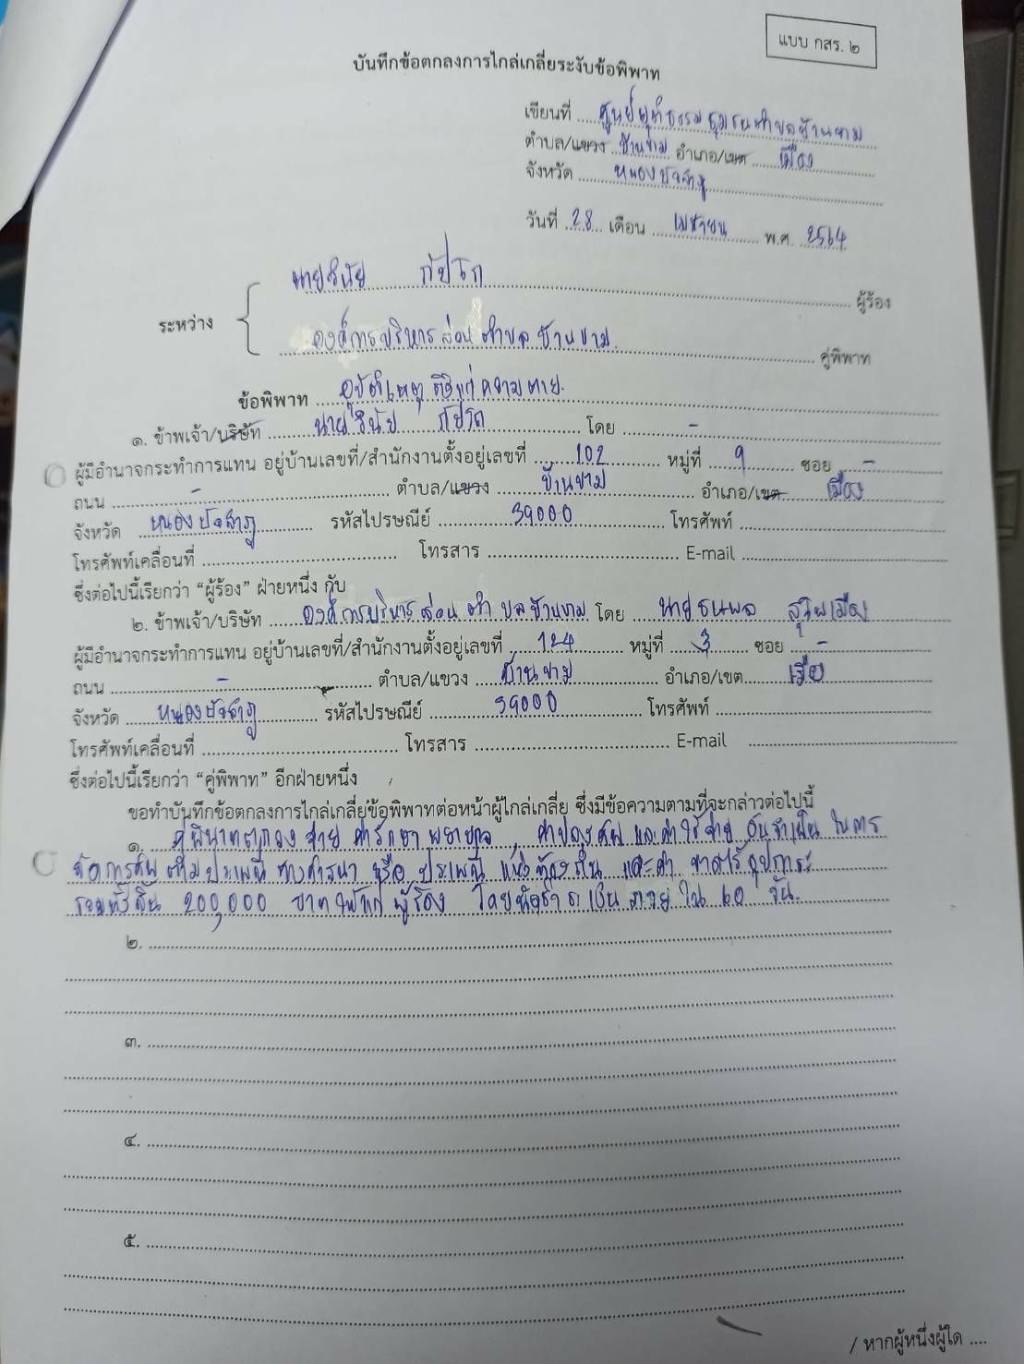 แบบ กสร. ๒
บันทึกข้อตกลงการไกล่เกลี่ยระงับข้อพิพาท
เขียนที่ ศูนย์ยุติธรรมชุมชนตำบลบ้านขาม
ตำบล/แขวง บ้านขาม อำเภอ/เขต เมือง
จังหวัด หนองบัวลำภู
วันที่ 28 เดือน เมษายน พ.ศ. 2564
นายวินัย ภัปโก ผู้ร้อง
ระหว่าง
องค์การบริหารส่วนตำบลบ้านขาม คู่พิพาท
ข้อพิพาท อุบัติเหตุ ถึงแก่ความตาย
๑. ข้าพเจ้า/บริษัท นายวินัย โดย -
ผู้มีอำนาจกระทำการแทน อยู่บ้านเลขที่/สำนักงานตั้งอยู่เลขที่ 102 หมู่ที่ 9 ซอย -
ถนน - ตำบล/แขวง บ้านขาม อำเภอ/เขต เมือง
จังหวัด หนองบัวลำภู รหัสไปรษณีย์ 39000 โทรศัพท์
โทรศัพท์เคลื่อนที่ โทรสาร E-mail
ซึ่งต่อไปนี้เรียกว่า “ผู้ร้อง” ฝ่ายหนึ่ง กับ
๒. ข้าพเจ้า/บริษัท องค์การบริหารส่วนตำบลบ้านขาม โดย นายธนพล สุวิผเมือง
ผู้มีอำนาจกระทำการแทน อยู่บ้านเลขที่/สำนักงานตั้งอยู่เลขที่ 124 หมู่ที่ 3 ซอย -
ถนน - ตำบล/แขวง บ้านขาม อำเภอ/เขต เมือ
จังหวัด หนองบัวลำภู รหัสไปรษณีย์ 39000 โทรศัพท์
โทรศัพท์เคลื่อนที่ โทรสาร E-mail
ซึ่งต่อไปนี้เรียกว่า “คู่พิพาท” อีกฝ่ายหนึ่ง
ขอทำบันทึกข้อตกลงการไกล่เกลี่ยข้อพิพาทต่อหน้าผู้ไกล่เกลี่ย ซึ่งมีข้อความตามที่จะกล่าวต่อไปนี้
๑. คู่พิพาทตกลงจ่าย ค่ารักษาพยาบาล, ค่าปลงศพ และค่าใช้จ่าย อันจำเป็น ในการ
จัดการศพ ตามประเพณี ทางศาสนา หรือ ประเพณี แห่งท้องถิ่น และค่า ขาดไร้อุปการะ
รวมทั้งสิ้น 200,000 บาท ให้แก่ ผู้ร้อง โดย เงิน ภายใน 60 วัน.
๒.
๓.
๔.
๕.
/ หากผู้หนึ่งผู้ใด ....